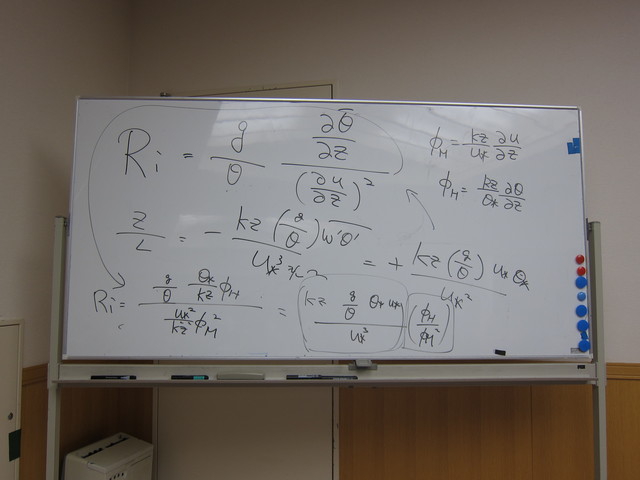 Ri = g/θ (∂θ̄/∂z)/(∂u/∂z)²
ϕ_M = kz/u* ∂u/∂z
ϕ_H = kz/θ* ∂θ/∂z
z/L = - kz(g/θ) w'θ' / u*³ = + kz(g/θ) u* θ* / u*²
Ri = (g/θ θ*/kz ϕ_H) / (u*²/k²z² ϕ_M²) = (kz g/θ θ* u*) / u*³ (ϕ_H/ϕ_M²)